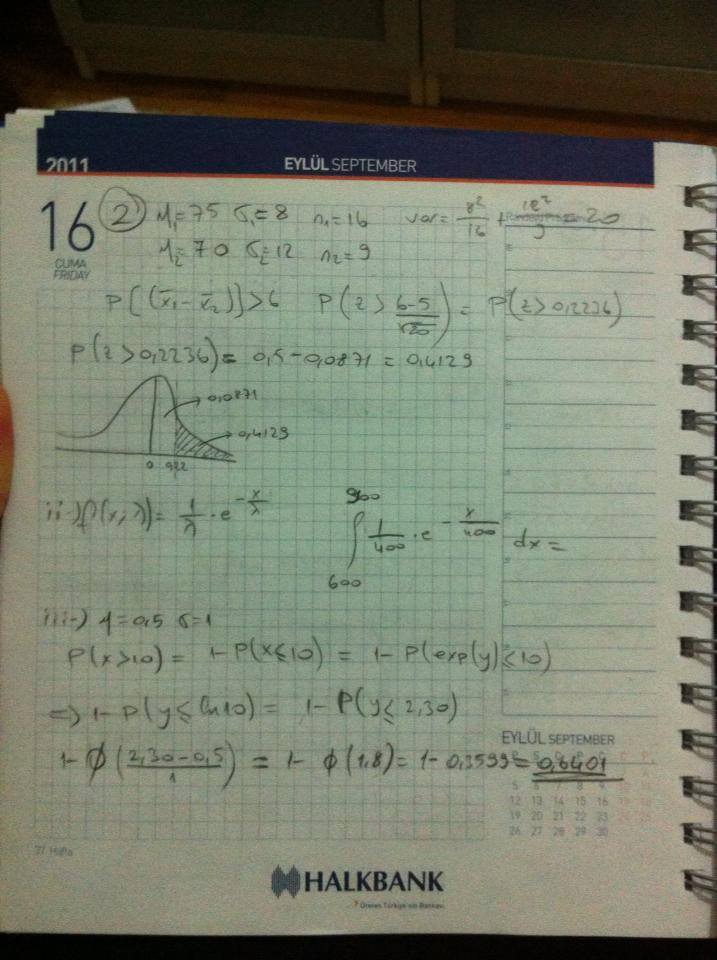 2011 EYLÜL SEPTEMBER
16
CUMA
FRIDAY
2 M₁=75 σ₁=8 n₁=16 var= 8²/16 + 12²/9 = 20
M₂=70 σ₂=12 n₂=9
P[(x̄₁-x̄₂)]>6 P(z > 6-5/√20) = P(z>0,2236)
P(z>0,2236)= 0,5-0,0871 = 0,4129
0,0871
0,4129
0
ii-) f(x;λ)= 1/λ · e^(-x/λ) ∫ 600 900 1/400 · e^(-x/400) dx =
iii-) M=0,5 σ=1
P(x>10) = 1-P(x≤10) = 1-P(exp(y)≤10)
⇒ 1-P(y≤ ln10) = 1-P(y≤ 2,30)
1-Φ(2,30-0,5/1) = 1-Φ(1,8)= 1-0,3599=0,6401
EYLÜL SEPTEMBER
5 6
12 13 14 15 16
19 20 21 22 23
26 27 28 29 30
37 Hafta
HALKBANK
Üreten Türkiye'nin Bankası